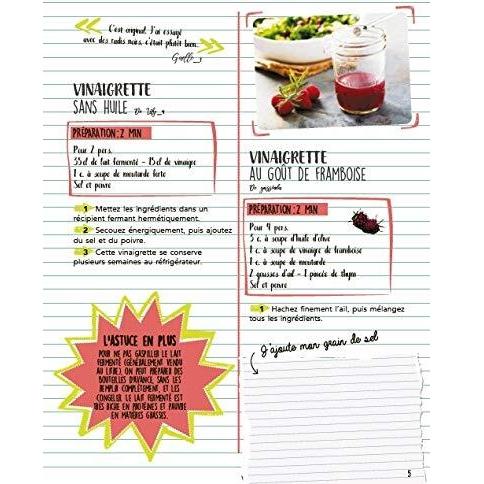 C'est original. J'ai essayé
avec des radis noirs, c'était plutôt bien.
Gaelle_
VINAIGRETTE
SANS HUILE De Lily_
PRÉPARATION : 2 MIN
Pour 2 pers.
35 cl de lait fermenté - 15 cl de vinaigre
1 c. à soupe de moutarde forte
Sel et poivre
1 Mettez les ingrédients dans un
récipient fermant hermétiquement.
2 Secouez énergiquement, puis ajoutez
du sel et du poivre.
3 Cette vinaigrette se conserve
plusieurs semaines au réfrigérateur.
L'ASTUCE EN PLUS
POUR NE PAS GASPILLER LE LAIT
FERMENTÉ (GÉNÉRALEMENT VENDU
AU LITRE), ON PEUT PRÉPARER DES
BOUTEILLES D'AVANCE, SANS LES
REMPLIR COMPLÈTEMENT, ET LES
CONGELER. LE LAIT FERMENTÉ EST
TRÈS RICHE EN PROTÉINES ET PAUVRE
EN MATIÈRES GRASSES.
VINAIGRETTE
AU GOÛT DE FRAMBOISE
De
PRÉPARATION : 2 MIN
Pour 4 pers.
3 c. à soupe d'huile d'olive
1 c. à soupe de vinaigre de framboise
1 c. à soupe de moutarde
2 gousses d'ail - 1 pincée de thym
Sel et poivre
1 Hachez finement l'ail, puis mélangez
tous les ingrédients.
J'ajoute mon grain de sel
5